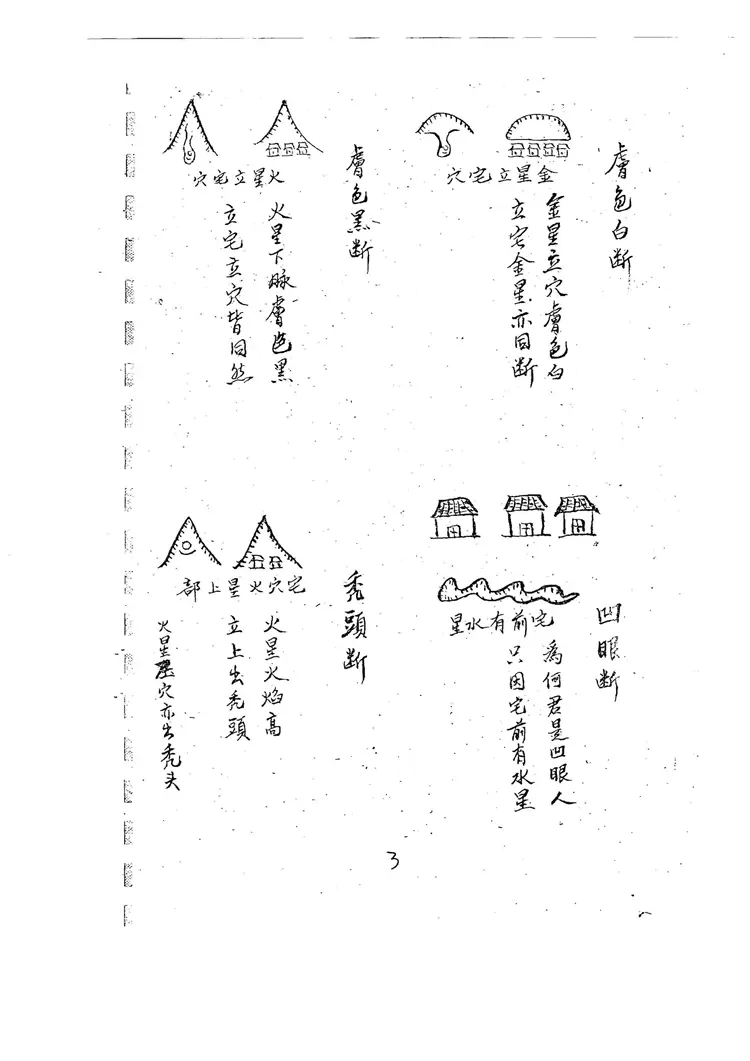 膚色白断
金星立宅穴
金星立穴膚色白
立宅金星亦同断
膚色黑断
火星立宅穴
火星下脉膚色黑
立宅立穴皆同然
凹眼断
宅前有水星
為何君是凹眼人
只因宅前有水星
禿頭断
宅穴火星上部
火星火焰高
立上出秃頭
火星立穴亦出秃头
3